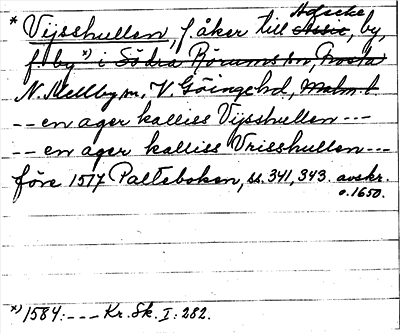 Hösche
* Vijsshullen, f. åker till Assie, by,
f. by *) i Södra Rörums sn, Frosta
N. Mellby sn, V. Göinge hd, Malm. l.
-- en ager kalliss Vijsshullen ---
-- en ager kalliss Vrisshullen ---
före 1517 Palteboken, ss. 341, 343. avskr.
o. 1650.
*) 1584: --- Kr. Sk. I: 282.